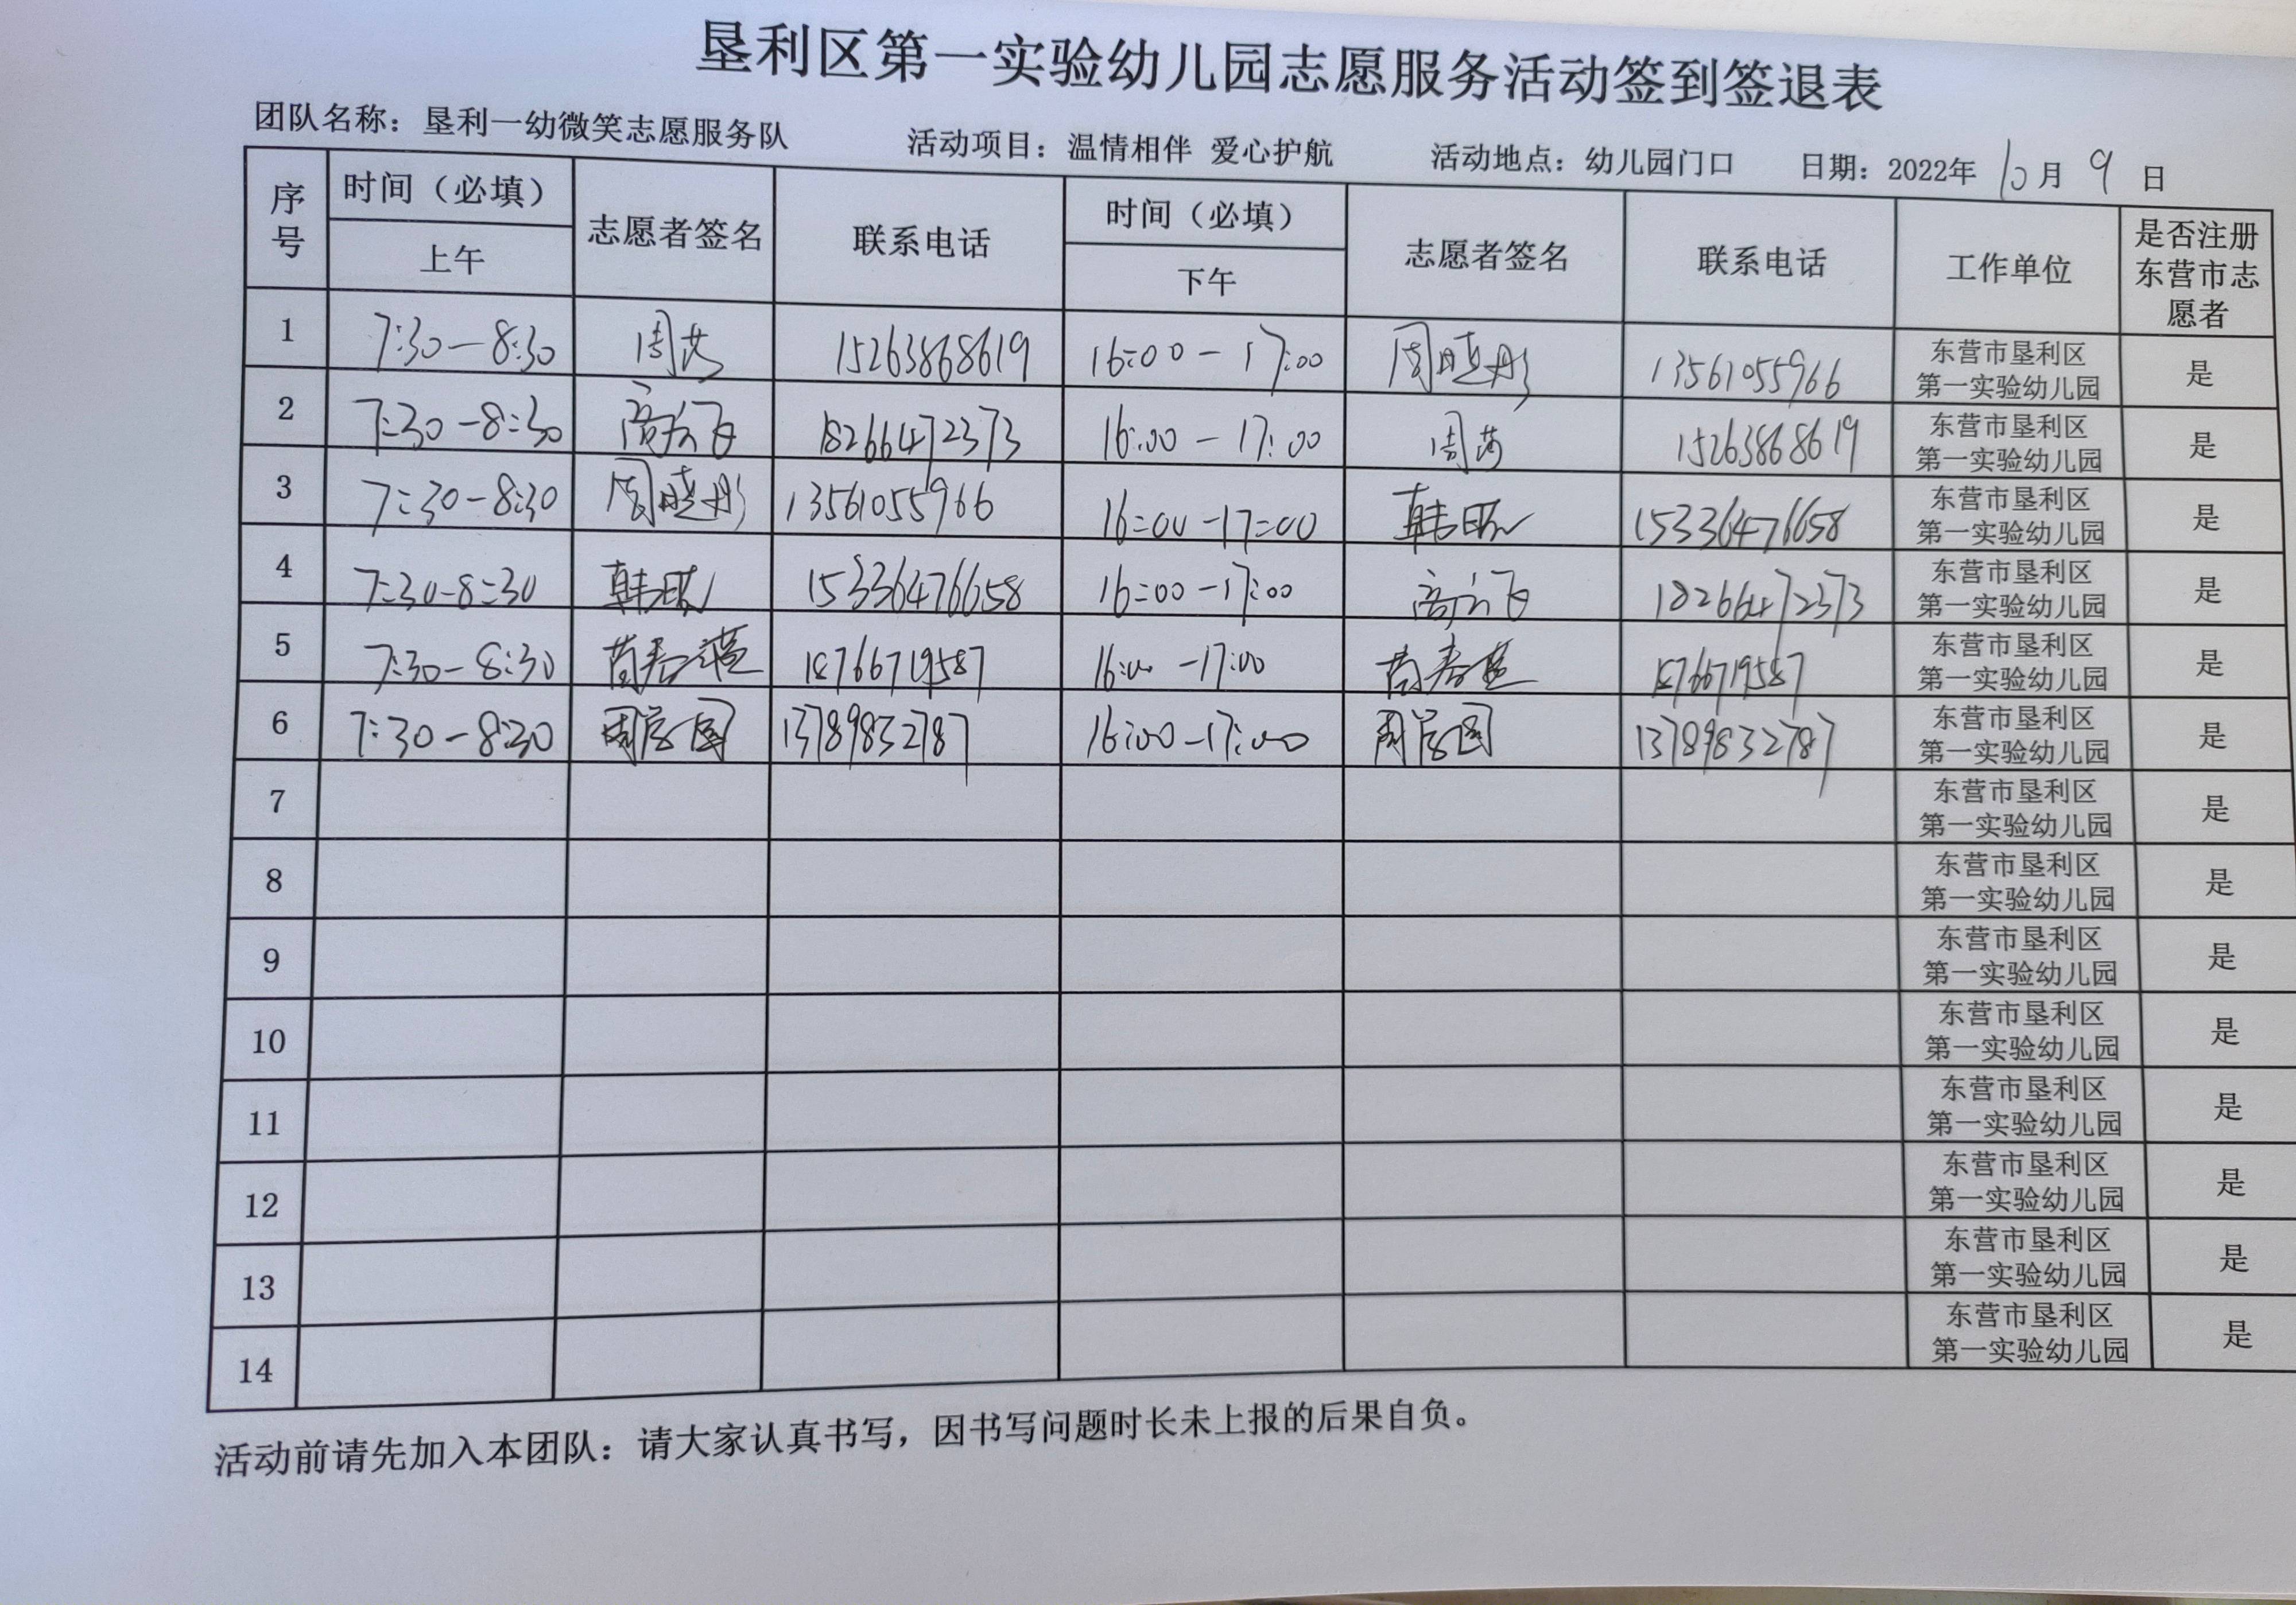 垦利区第一实验幼儿园志愿服务活动签到签退表
团队名称：垦利一幼微笑志愿服务队 活动项目：温情相伴 爱心护航 活动地点：幼儿园门口 日期：2022年 10月 9 日
序号 时间（必填） 上午 志愿者签名 联系电话 时间（必填） 下午 志愿者签名 联系电话 工作单位 是否注册东营市志愿者
1 7:30-8:30 周 15263868619 16:00-17:00 周晓彤 13561055966 东营市垦利区第一实验幼儿园 是
2 7:30-8:30 高 飞 18266472373 16:00-17:00 周 15263868619 东营市垦利区第一实验幼儿园 是
3 7:30-8:30 周晓彤 13561055966 16:00-17:00 韩 15336476658 东营市垦利区第一实验幼儿园 是
4 7:30-8:30 韩 15336476658 16:00-17:00 高 飞 18266472373 东营市垦利区第一实验幼儿园 是
5 7:30-8:30 18766719587 16:00-17:00 18766719587 东营市垦利区第一实验幼儿园 是
6 7:30-8:30 周 13789832787 16:00-17:00 周 13789832787 东营市垦利区第一实验幼儿园 是
7 东营市垦利区第一实验幼儿园 是
8 东营市垦利区第一实验幼儿园 是
9 东营市垦利区第一实验幼儿园 是
10 东营市垦利区第一实验幼儿园 是
11 东营市垦利区第一实验幼儿园 是
12 东营市垦利区第一实验幼儿园 是
13 东营市垦利区第一实验幼儿园 是
14 东营市垦利区第一实验幼儿园 是
活动前请先加入本团队：请大家认真书写，因书写问题时长未上报的后果自负。